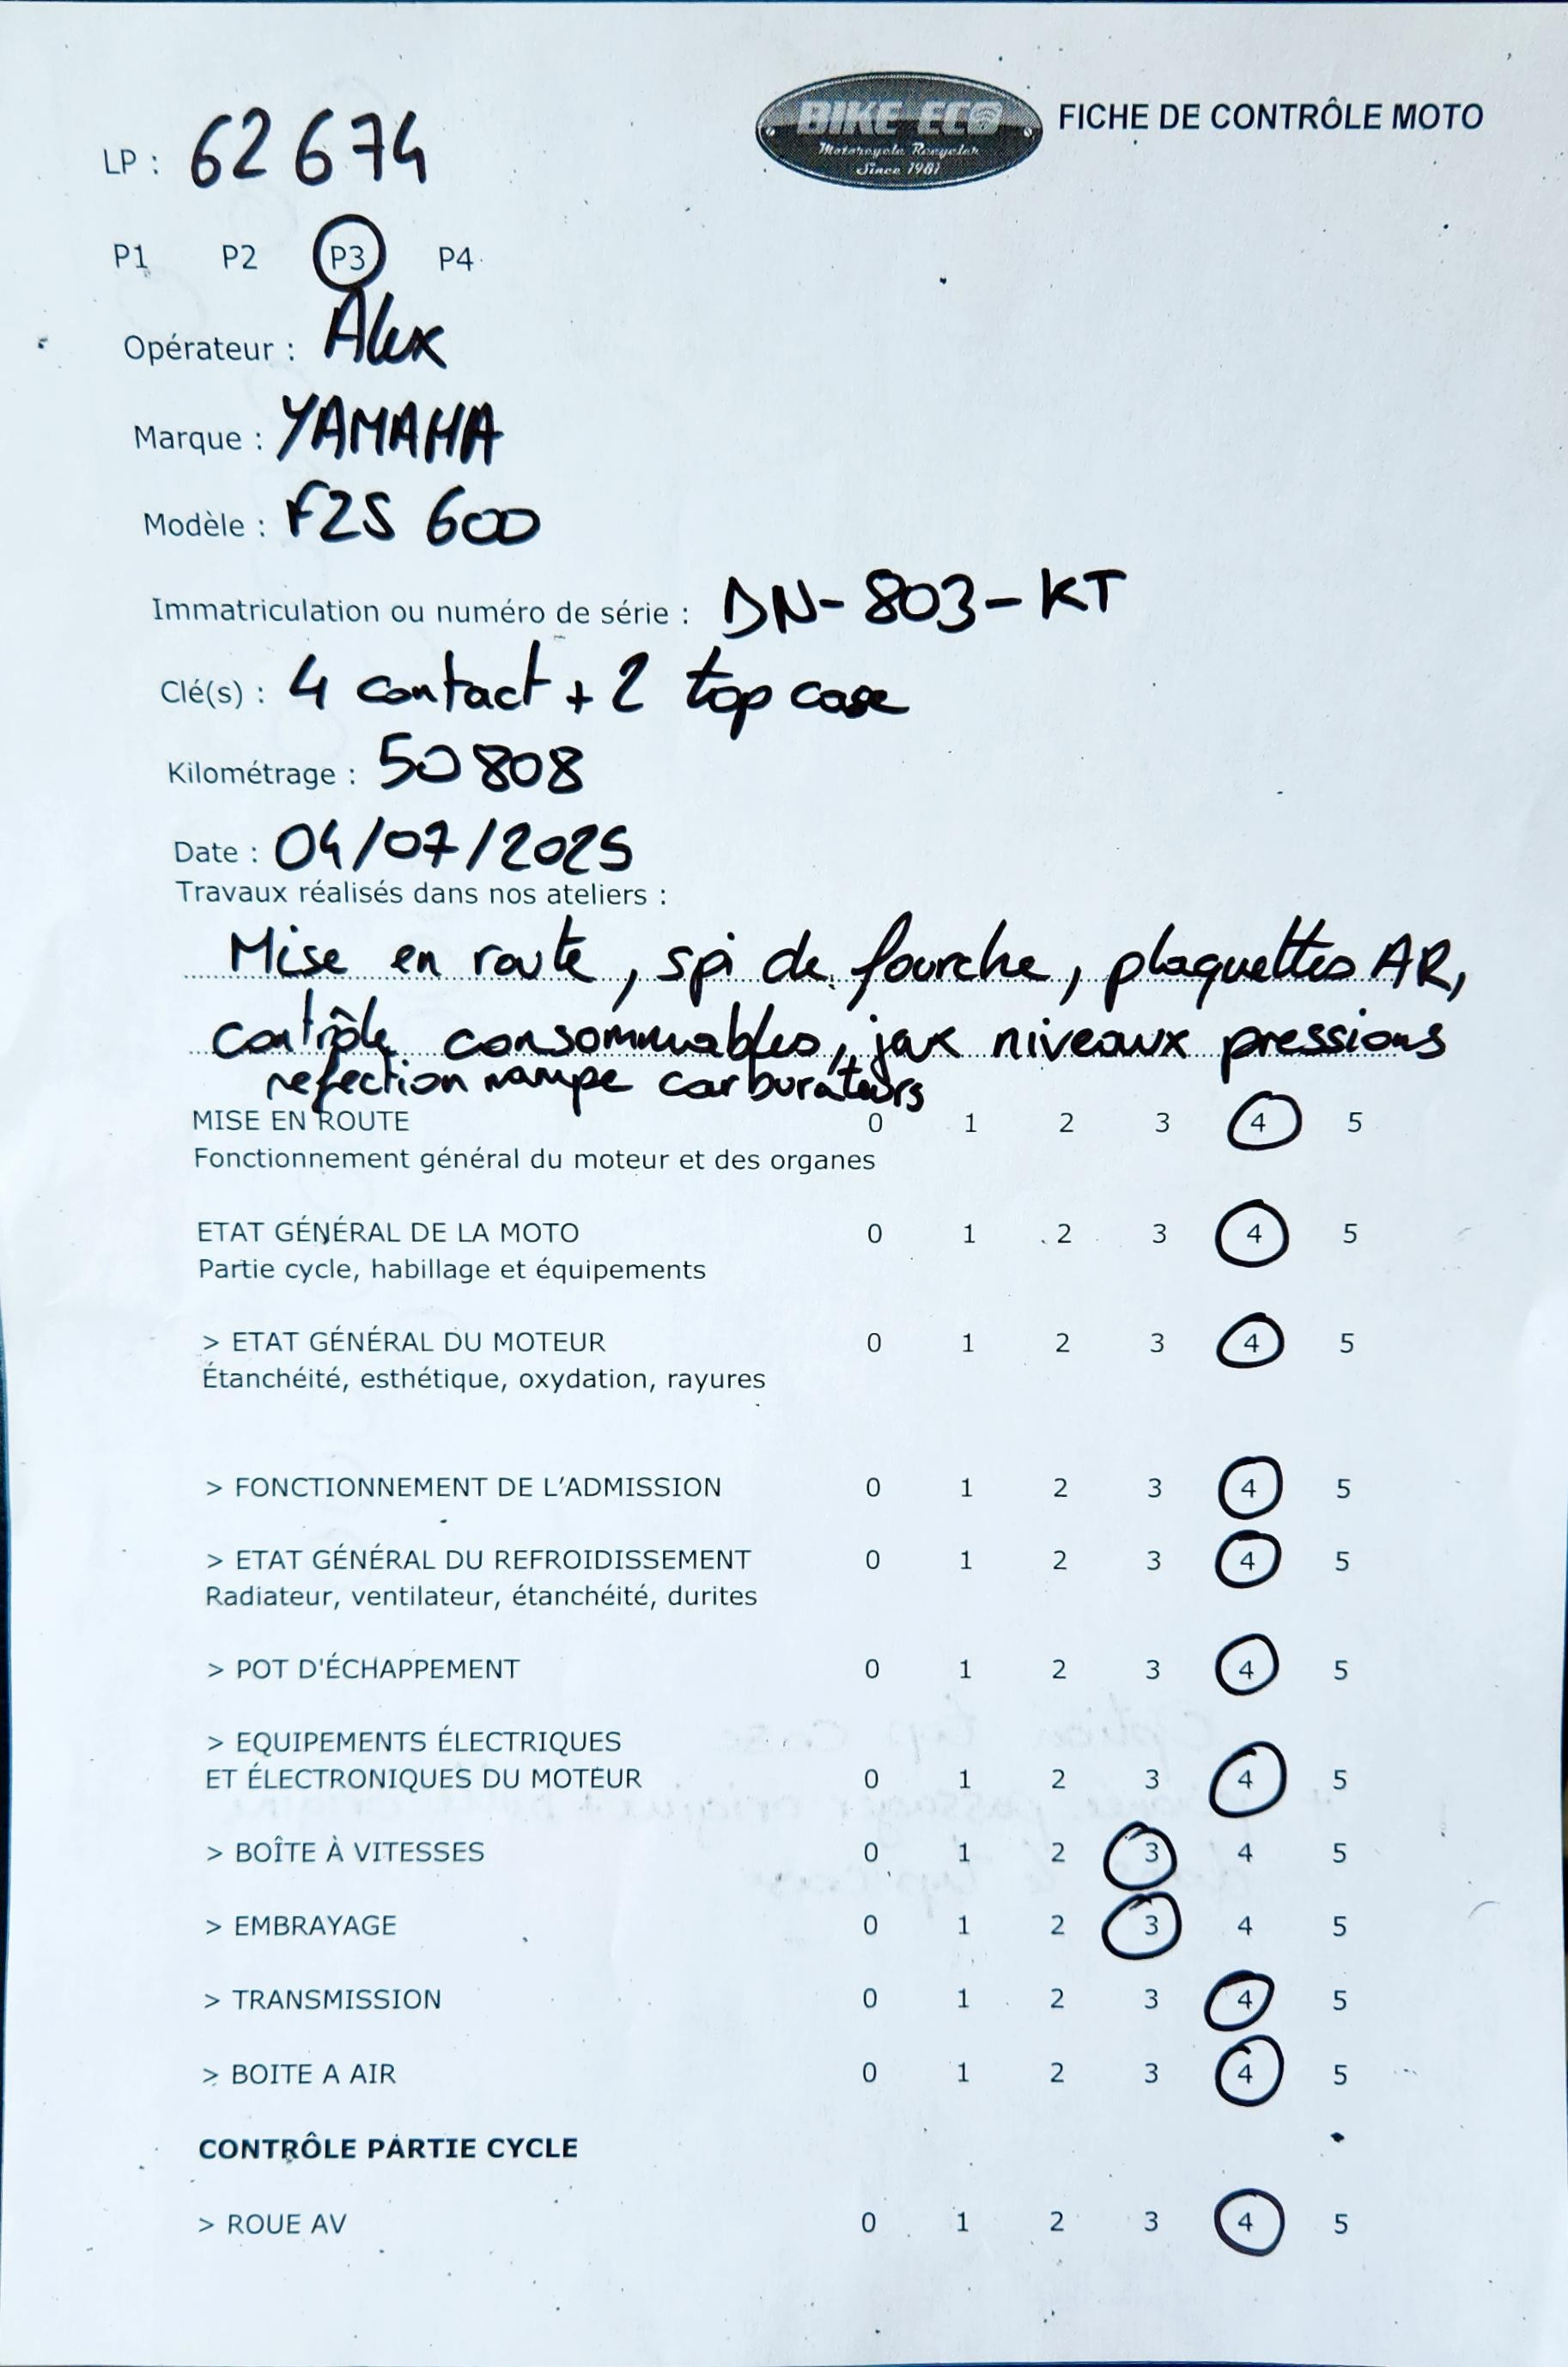 BIKE-ECO
Motorcycle Recycler
Since 1981
FICHE DE CONTRÔLE MOTO
LP : 62674
P1 P2 P3 P4
Opérateur : Alex
Marque : YAMAHA
Modèle : FZS 600
Immatriculation ou numéro de série : DN-803-KT
Clé(s) : 4 contact + 2 top case
Kilométrage : 50808
Date : 04/07/2025
Travaux réalisés dans nos ateliers :
Mise en route, spi de fourche, plaquettes AR,
contrôle consommables, jeux niveaux pressions
refection rampe carburateurs
MISE EN ROUTE 0 1 2 3 4 5
Fonctionnement général du moteur et des organes
ETAT GÉNÉRAL DE LA MOTO 0 1 2 3 4 5
Partie cycle, habillage et équipements
> ETAT GÉNÉRAL DU MOTEUR 0 1 2 3 4 5
Étanchéité, esthétique, oxydation, rayures
> FONCTIONNEMENT DE L'ADMISSION 0 1 2 3 4 5
> ETAT GÉNÉRAL DU REFROIDISSEMENT 0 1 2 3 4 5
Radiateur, ventilateur, étanchéité, durites
> POT D'ÉCHAPPEMENT 0 1 2 3 4 5
> EQUIPEMENTS ÉLECTRIQUES
ET ÉLECTRONIQUES DU MOTEUR 0 1 2 3 4 5
> BOÎTE À VITESSES 0 1 2 3 4 5
> EMBRAYAGE 0 1 2 3 4 5
> TRANSMISSION 0 1 2 3 4 5
> BOITE A AIR 0 1 2 3 4 5
CONTRÔLE PARTIE CYCLE
> ROUE AV 0 1 2 3 4 5